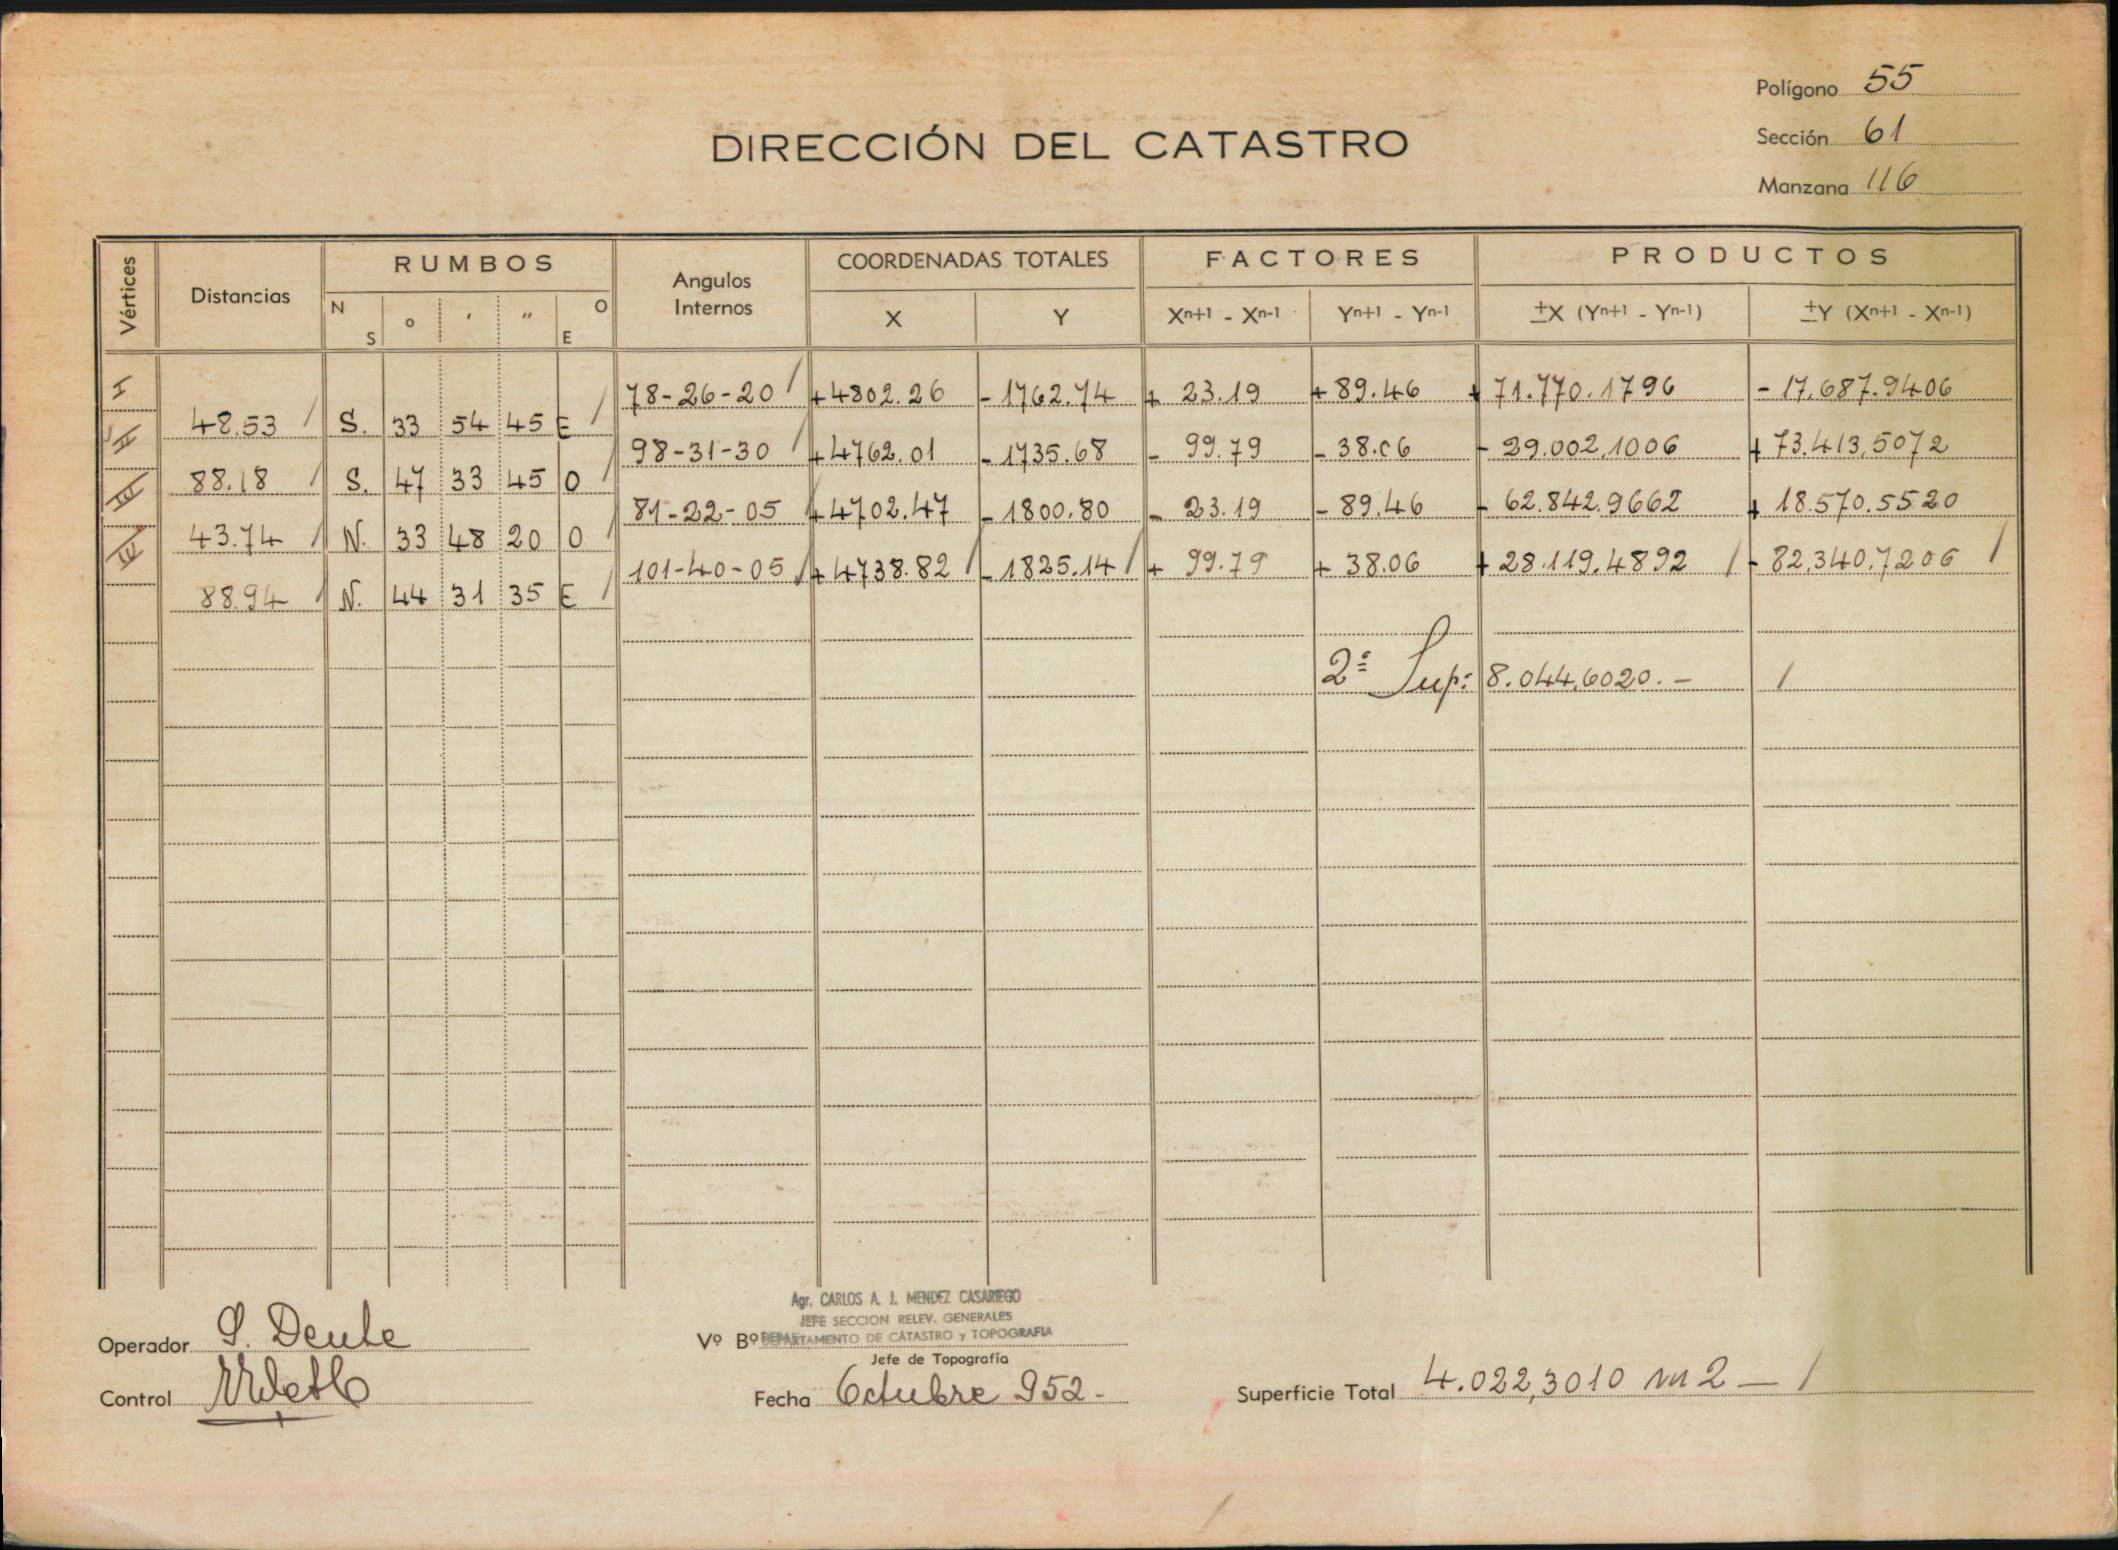 Polígono 55
Sección 61
Manzana 116
DIRECCIÓN DEL CATASTRO
Vértices Distancias RUMBOS Angulos Internos COORDENADAS TOTALES FACTORES PRODUCTOS
N S o ' " O E X Y Xn+1 - Xn-1 Yn+1 - Yn-1 ±X (Yn+1 - Yn-1) ±Y (Xn+1 - Xn-1)
I 78-26-20 +4802.26 -1762.74 + 23.19 +89.46 + 71.770.1796 - 17.687.9406
48.53 S. 33 54 45 E
II 98-31-30 +4762.01 -1735.68 - 99.79 -38.06 - 29.002,1006 + 73.413,5072
88.18 S. 47 33 45 O
III 81-22-05 +4702.47 -1800.80 - 23.19 -89.46 - 62.842.9662 + 18.570.5520
43.74 N. 33 48 20 O
IV 101-40-05 +4738.82 -1825.14 + 99.79 + 38.06 + 28.119.4892 - 82,340.7206
88.94 N. 44 31 35 E
2= Sup: 8.044,6020.-
Agr. CARLOS A. J. MENDEZ CASARIEGO
JEFE SECCION RELEV. GENERALES
Operador S. Deule Vº Bº DEPARTAMENTO DE CATASTRO y TOPOGRAFIA
Jefe de Topografía
Control Fecha Octubre 952- Superficie Total 4.022,3010 m2 -